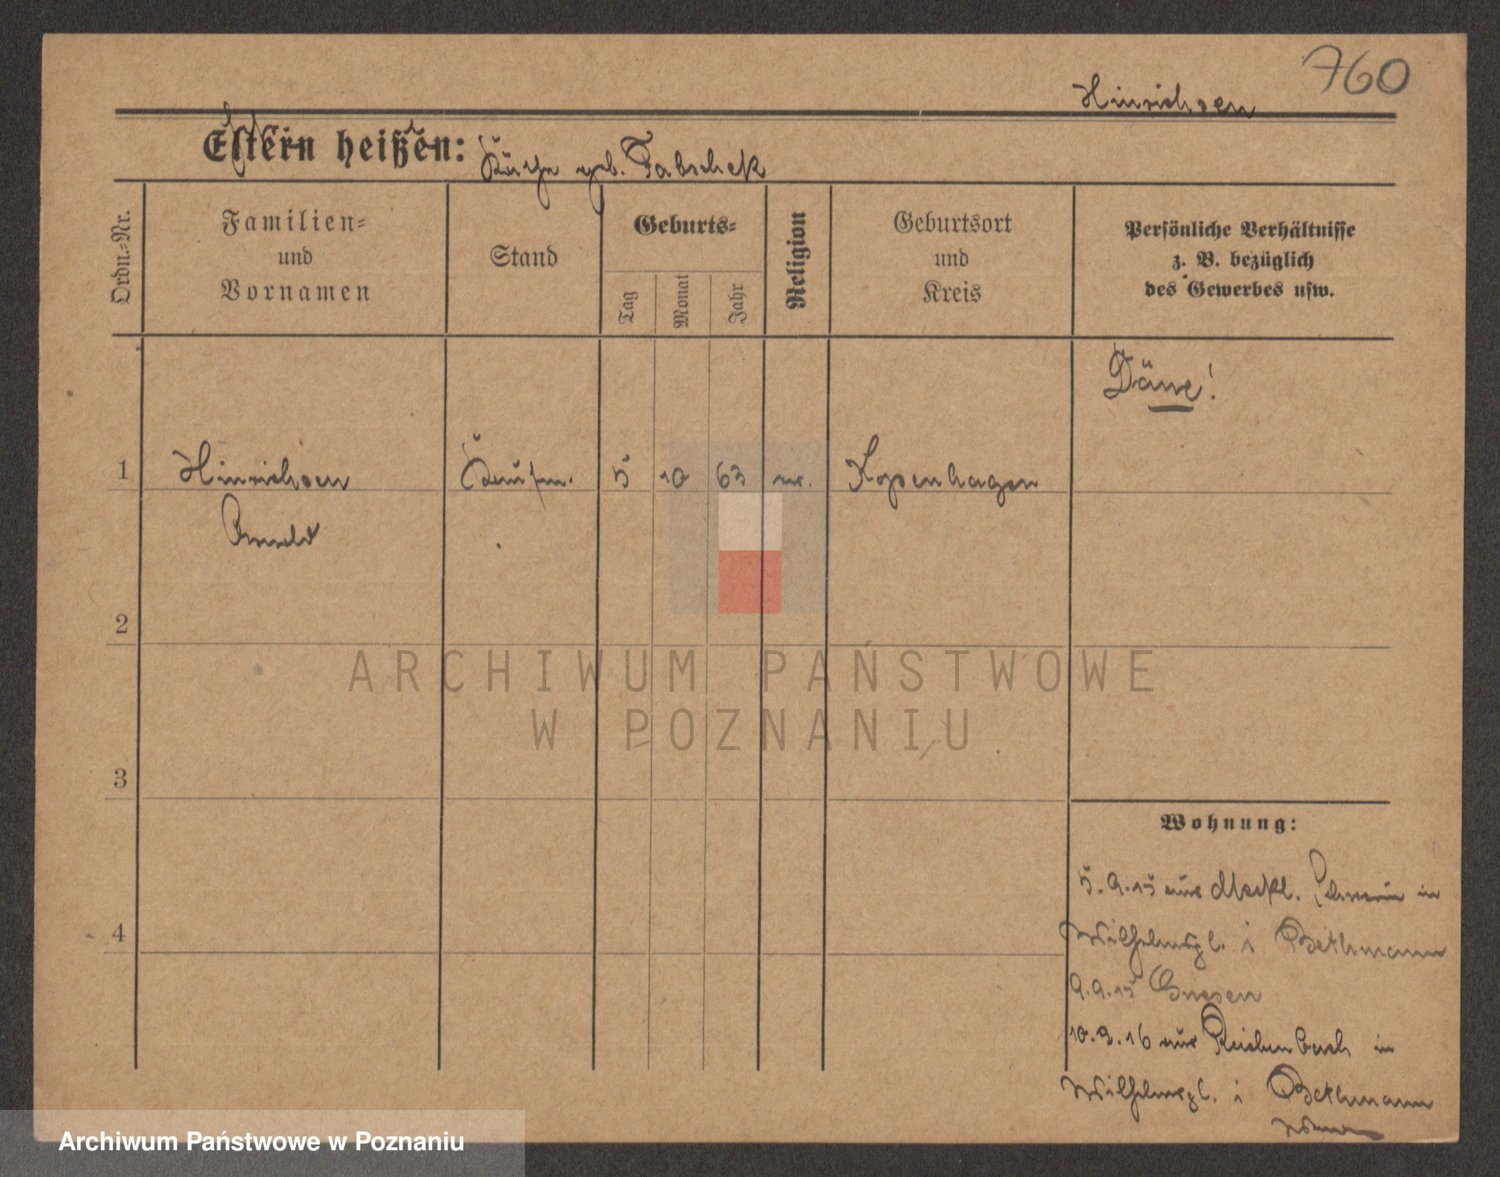 760
Hinrichsen
Eltern heißen:
geb. Tabschek
Ordn.-Nr.
Familien-
und
Vornamen
Stand
Geburts-
Tag
Monat
Jahr
Religion
Geburtsort
und
Kreis
Persönliche Verhältnisse
z. B. bezüglich
des Gewerbes usw.
Däne!
1
Hinrichsen
Kaufm.
5
10
63
Kopenhagen
Arnold
2
ARCHIWUM PAŃSTWOWE
W POZNANIU
3
Wohnung:
5.9.15 aus Meckl. Schwerin in
4
Wilhelmspl. 1 Bethmann
9.9.15 Gnesen
10.3.16 aus Reichenbach in
Wilhelmspl. 1 Bethmann
Archiwum Państwowe w Poznaniu